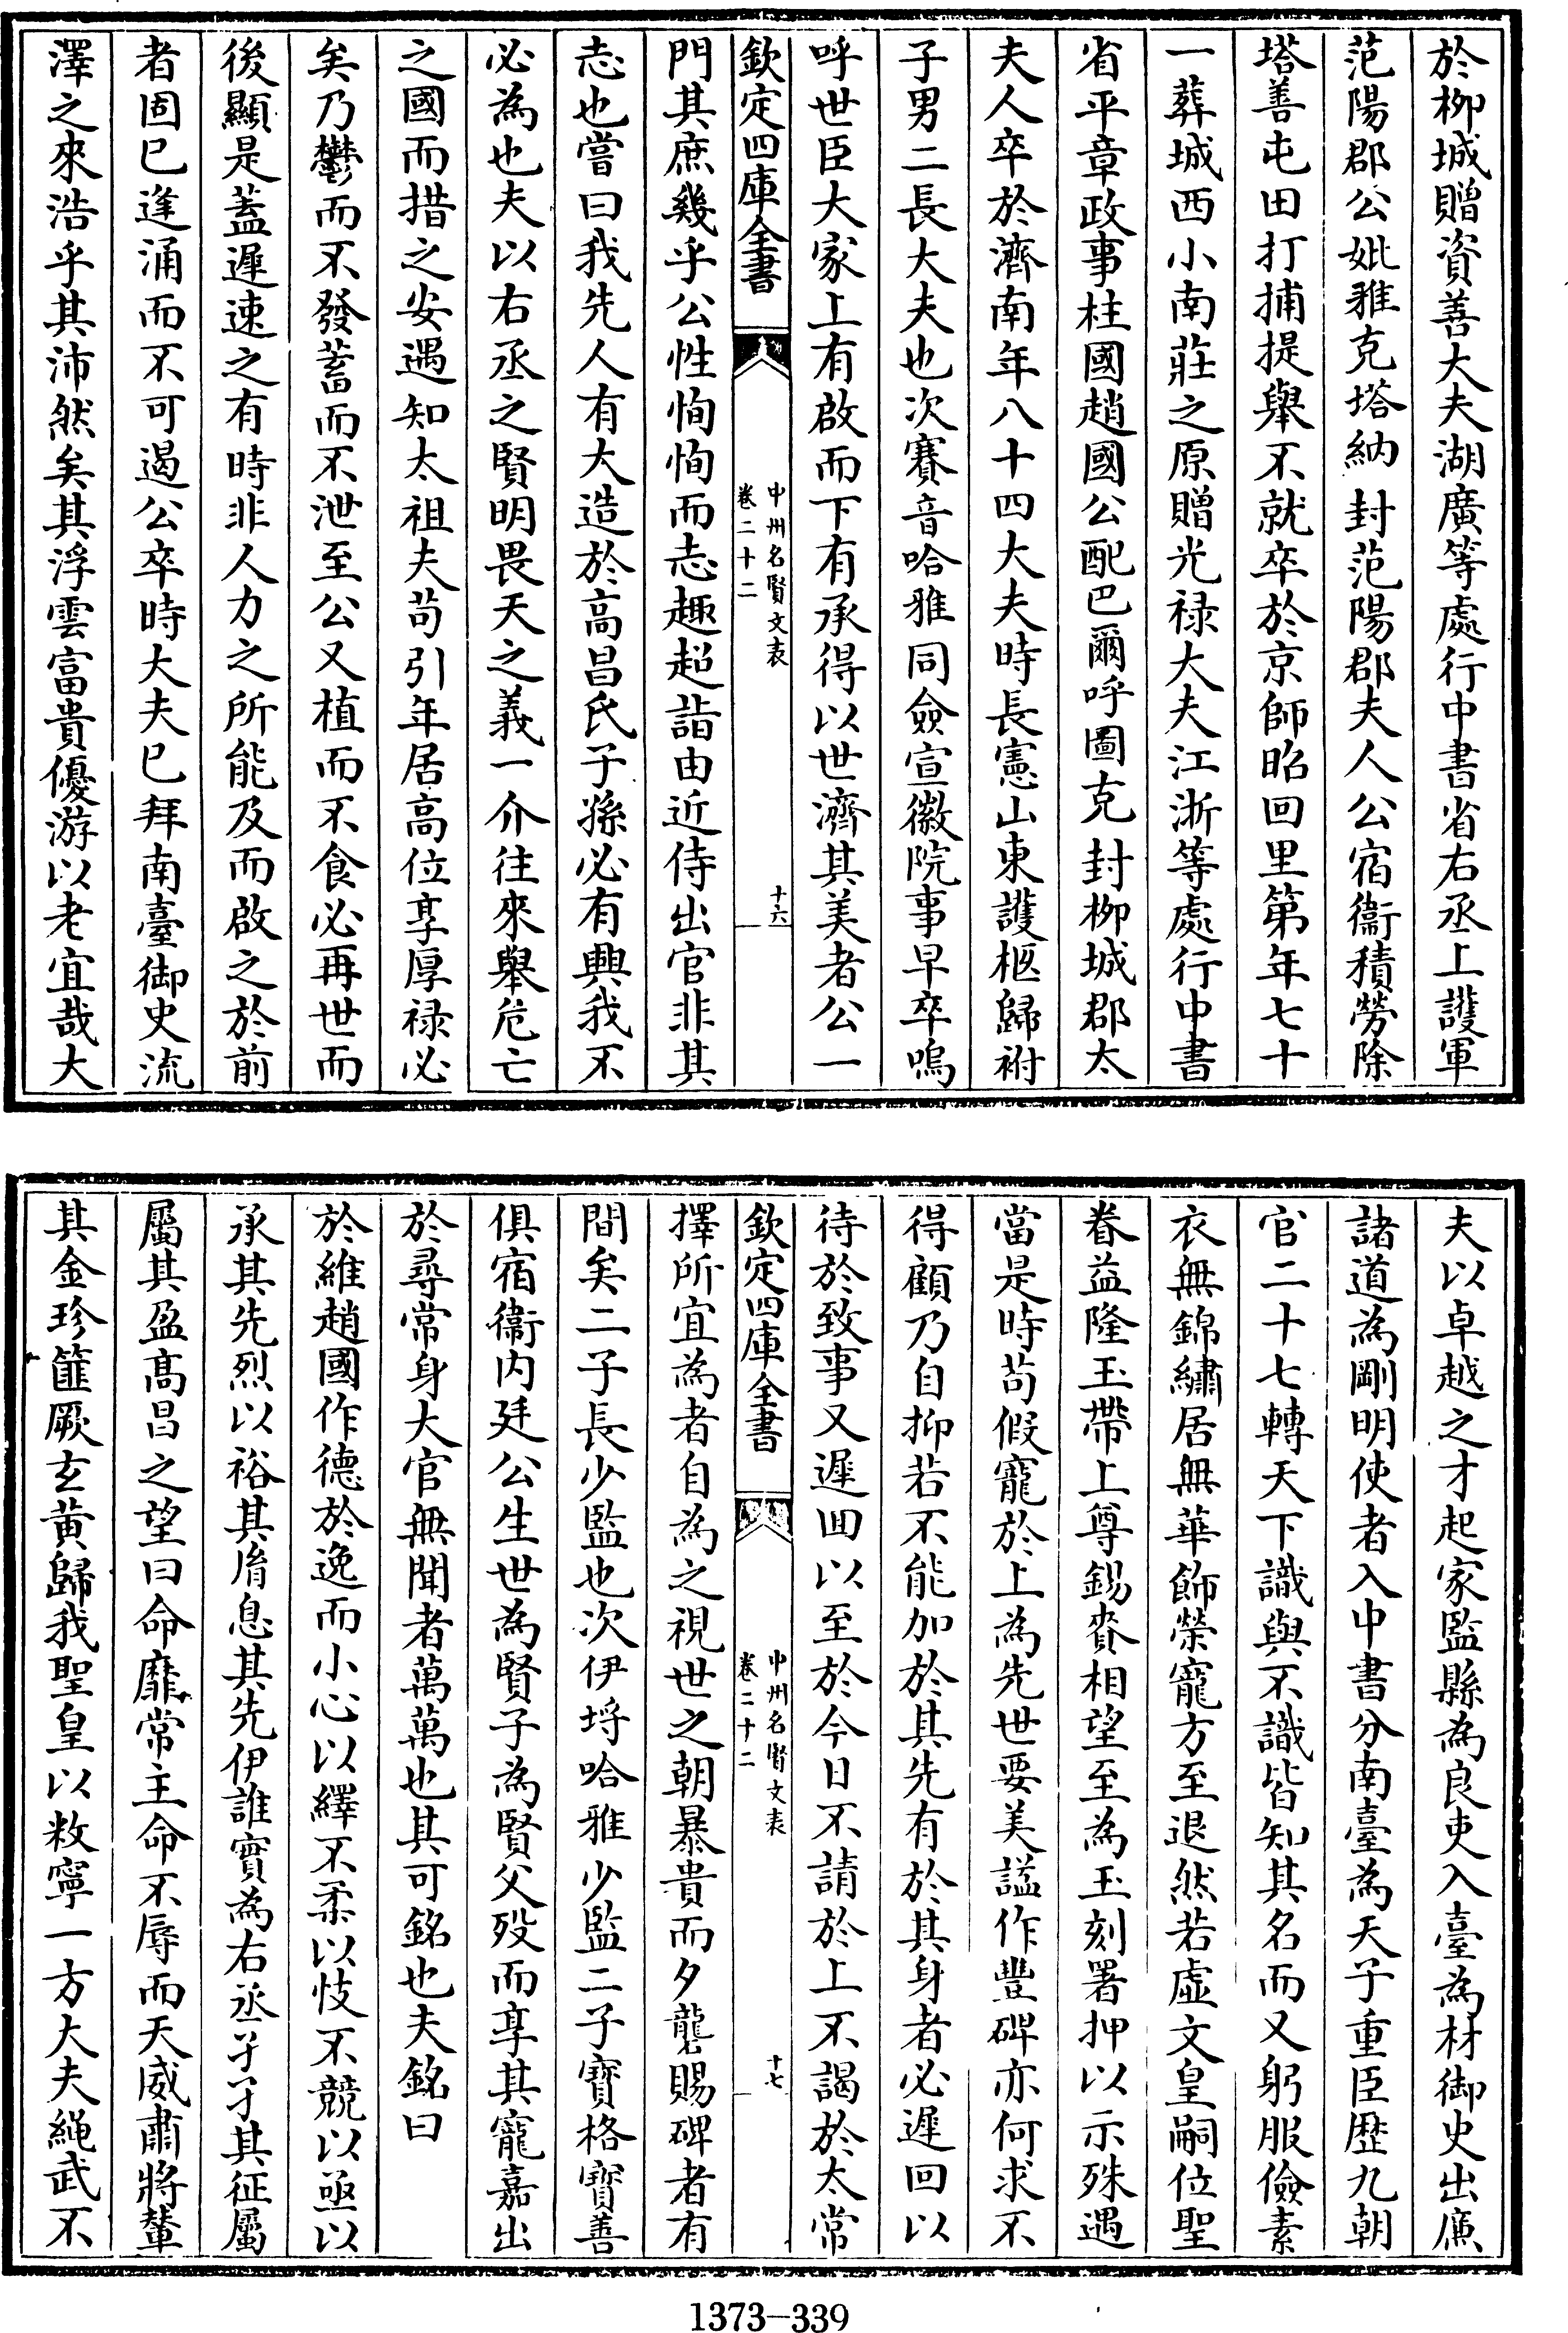 於柳城贈資善大夫湖廣等處行中書省右丞上護軍
范陽郡公妣雅克塔納封范陽郡夫人公宿衞積勞除
塔善屯田打捕提舉不就卒於京師昭回里第年七十
一葬城西小南莊之原贈光祿大夫江浙等處行中書
省平章政事柱國趙國公配巴爾呼圖克封柳城郡太
夫人卒於濟南年八十四大夫時長憲山東護柩歸祔
子男二長大夫也次賽音哈雅同僉宣徽院事早卒嗚
呼世臣大家上有啟而下有承得以世濟其美者公一
欽定四庫全書
中州名賢文表
卷二十二
十六
門其庶幾乎公性恂恂而志趣超詣由近侍出官非其
志也嘗曰我先人有大造於高昌氏子孫必有興我不
必為也夫以右丞之賢明畏天之義一介往來舉危亡
之國而措之安遇知太祖夫苟引年居高位享厚祿必
矣乃鬱而不發蓄而不泄至公又植而不食必再世而
後顯是蓋遲速之有時非人力之所能及而啟之於前
者固已逢涌而不可遏公卒時大夫已拜南臺御史流
澤之來浩乎其沛然矣其浮雲富貴優游以老宜哉大
夫以卓越之才起家監縣為良吏入臺為材御史出廉
諸道為剛明使者入中書分南臺為天子重臣歷九朝
官二十七轉天下識與不識皆知其名而又躬服儉素
衣無錦繡居無華飾榮寵方至退然若虛文皇嗣位聖
眷益隆玉帶上尊錫賚相望至為玉刻署押以示殊遇
當是時苟假寵於上為先世要美諡作豐碑亦何求不
得顧乃自抑若不能加於其先有於其身者必遲回以
待於致事又遲回以至於今日不請於上不謁於太常
欽定四庫全書
中州名賢文表
卷二十二
十七
擇所宜為者自為之視世之朝暴貴而夕礱賜碑者有
間矣二子長少監也次伊埒哈雅少監二子寶格寶善
俱宿衞内廷公生世為賢子為賢父殁而享其寵嘉出
於尋常身大官無聞者萬萬也其可銘也夫銘曰
於維趙國作德於逸而小心以繹不柔以忮不競以亟以
承其先烈以裕其胤息其先伊誰實為右丞孑孑其征屬
屬其盈高昌之望曰命靡常主命不辱而天威肅將輦
其金珍篚厥玄黄歸我聖皇以敉寧一方大夫繩武不
1373-339